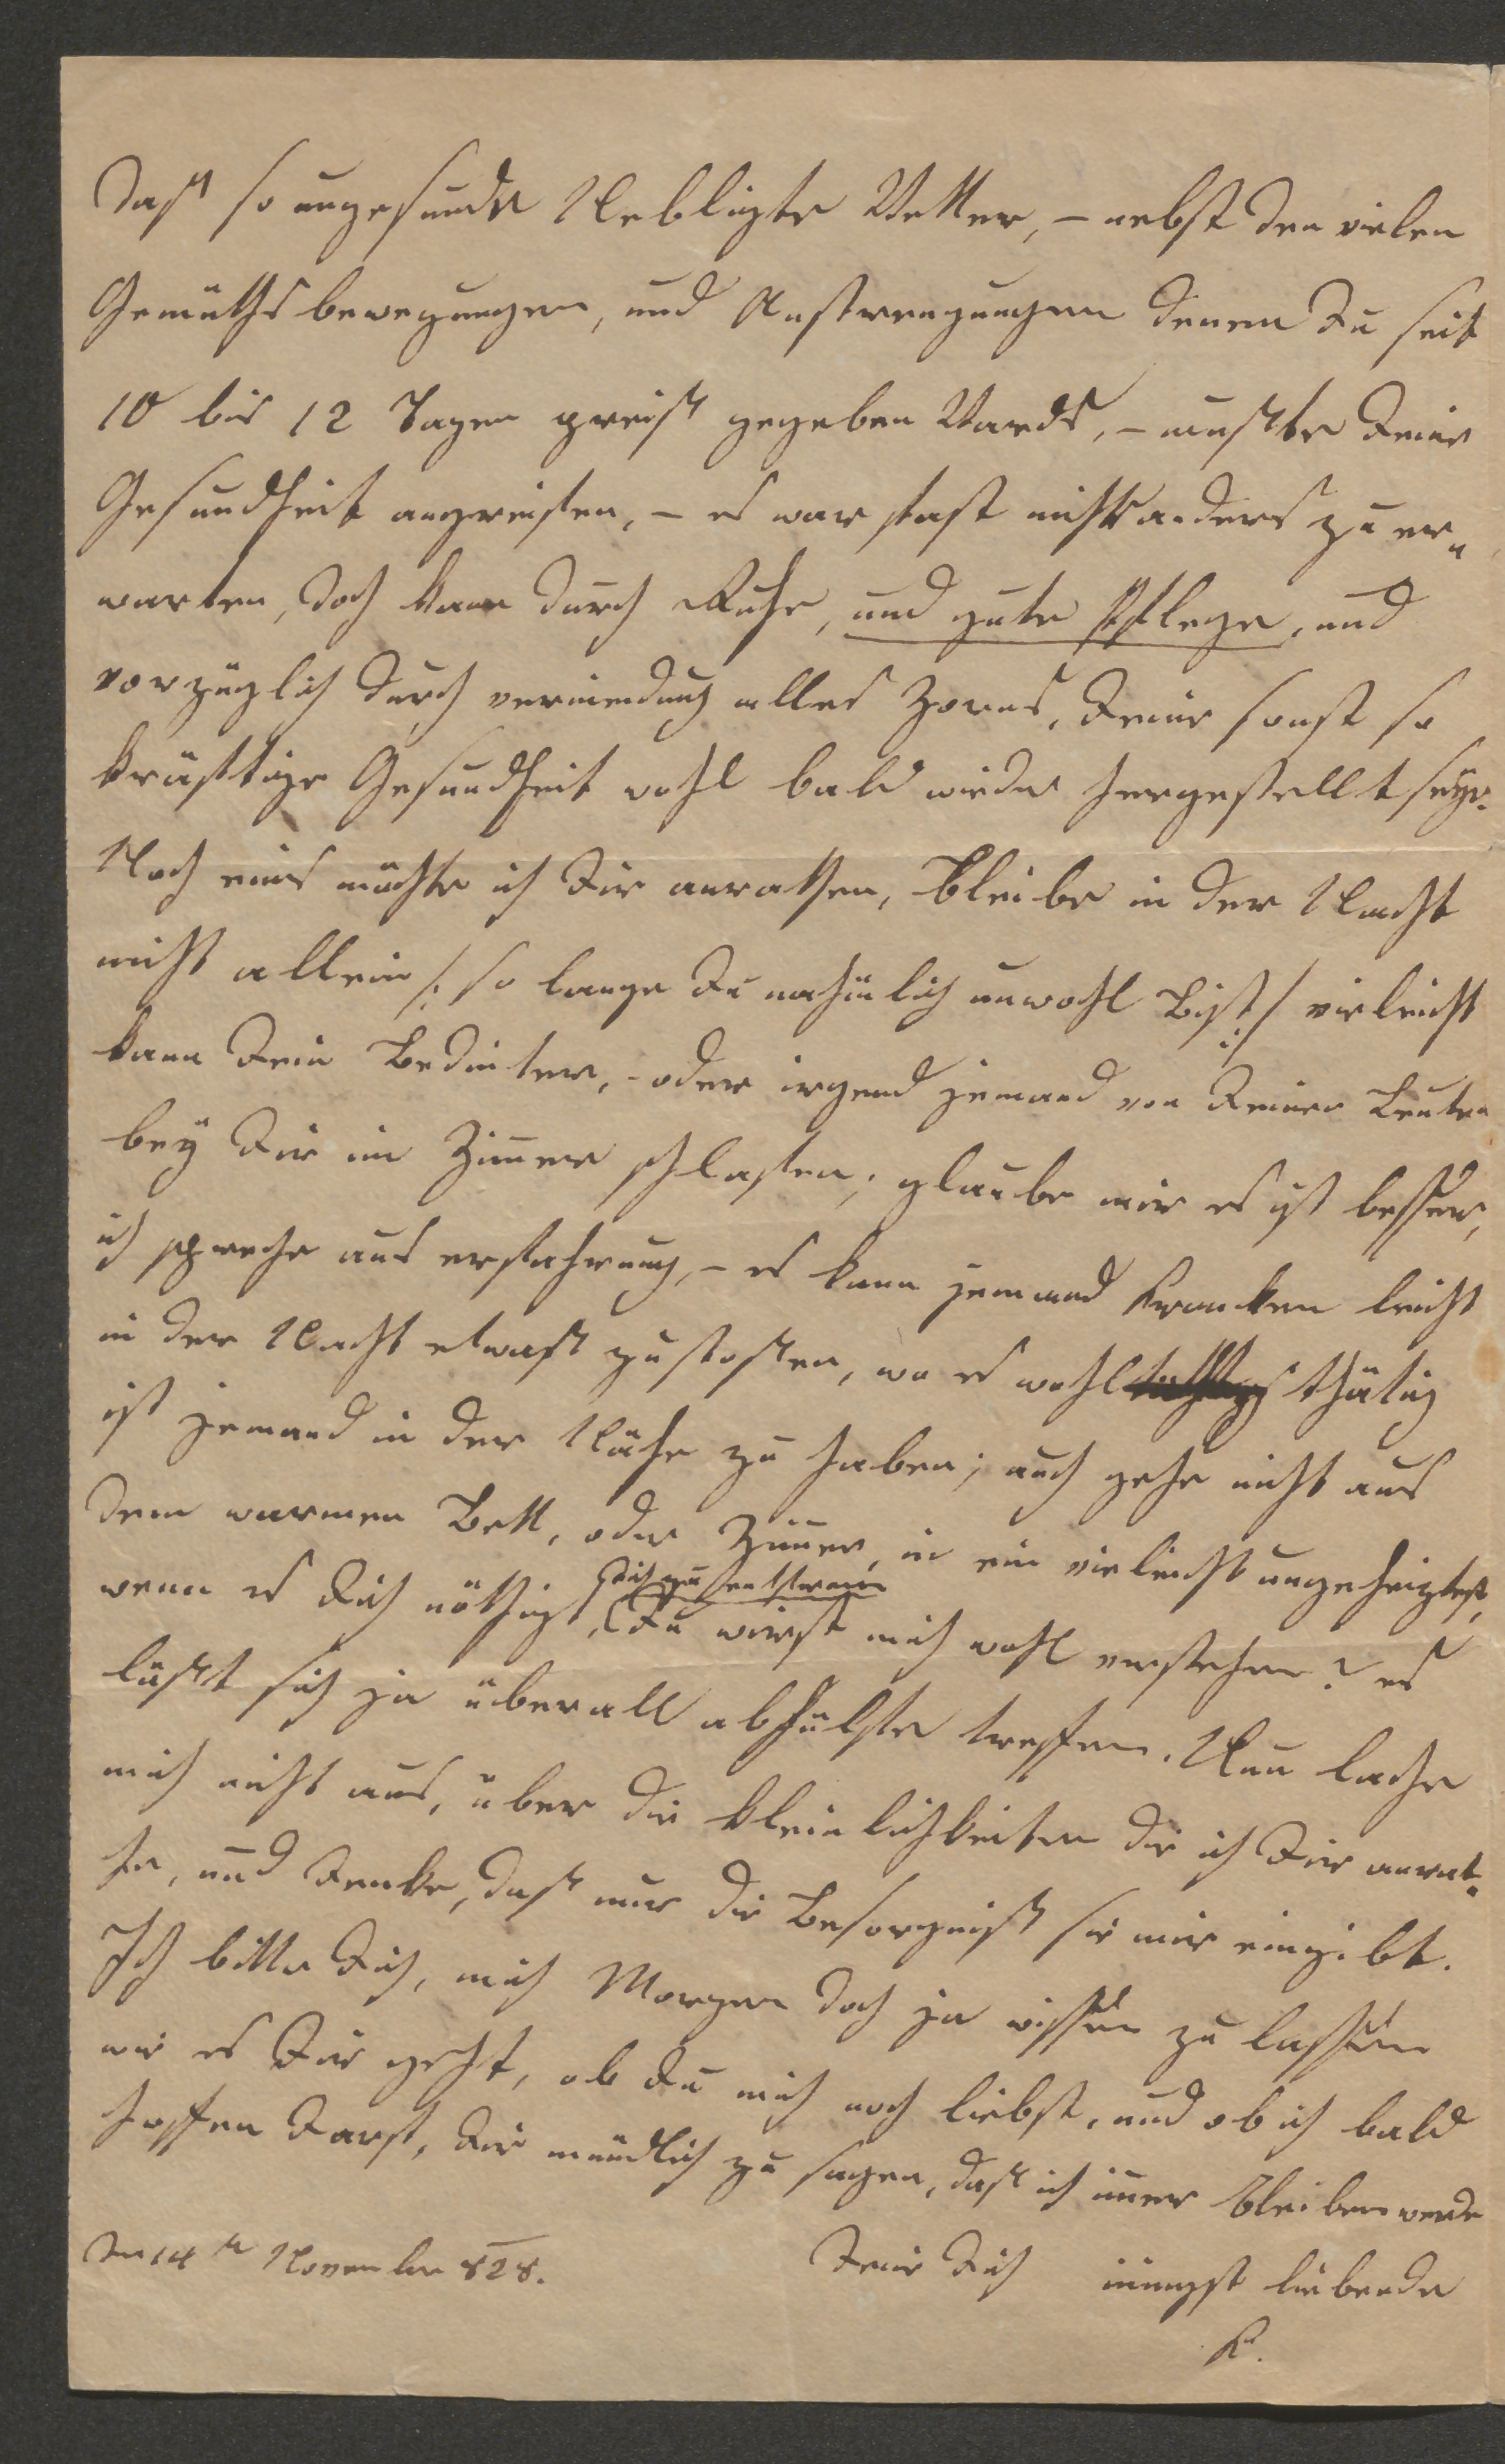 Daß so ungesunde Nebligte Wetter, – nebst den vielen
Gemüthsbewegungen, und Anstrengungen denen Du seit
10 bis 12 Tagen preiß gegeben Wardst, – mußte Deine
Gesundheit angreifen, – es war fast nichts anders zu er„
warten, doch kann durch Ruhe, und gute Pflege, und
vorzüglich durch vermeidung alles Zorns, Deine sonst so
kräftige Gesundheit wohl bald wieder hergestellt seyn.
Noch eins möchte ich Dir anrathen, Bleibe in der Nacht
nicht allein /: so lange Du nähmlich unwohl Bist :/ vieleicht
kann Dein Bedinter, – oder irgend jemand von Deinen Leuten
bey Dir im Zimmer schlafen; glaube mir es ist besser,
ich spreche aus erfahrung, – es kann jemand Kranken leicht
in der Nacht etwaß zustoßen, wo es wohl thätig
ist jemand in der Nähe zu haben; auch gehe nicht aus
dem warmen Bett, oder Zimmer, in ein vieleicht ungeheiztes,
wenn es Dich nöthigt, Du wirst mich wohl verstehen? es
läßt sich ja überall abhülfe treffen. Nun lache
mich nicht aus, über die kleinlichkeiten die ich Dir anrat„
he, und Denke, daß nur die Besorgniß sie mir eingibt.
Ich bitte Dich, mich Morgen doch ja wissen zu lassen
wie es Dir geht, ob Du mich noch liebst, und ob ich bald
hoffen Darf, Dir mündlich zu sagen, daß ich immer Bleiben werde
Den 14ten November 828.
Deine Dich innigst liebende
K.